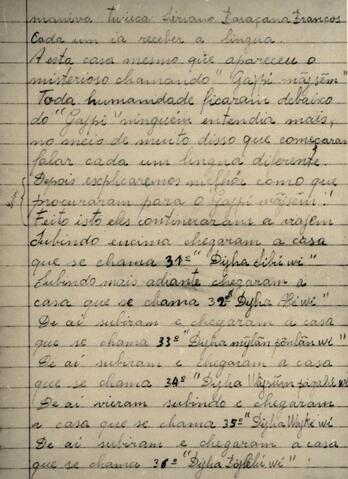 maniva tuiuca Siriano Baraçana Brancos
Cada um ia receber a lingua.
A esta casa mesmo que apareceu o
misterioso chamando "Gaspi mãssem"
Toda humanidade ficaram debaixo
do "Gaspi" ninguém entendia mais,
no meio de muito disso que começaram
falar cada um lingua diferente.
Depois esplicaremos melhór como que
procuraram para o Gaspi mãsem!"
Feito isto eles continuaram a viajem
Subindo encima chegaram a casa
que se chama 31ª "Dijha Sibi wi"
Subindo mais adiante chegaram a
casa que se chama 32ª "Dijha wi"
De ai subiram e chegaram a casa
que se chama 33º "Dijha wi"
De ai subiram e chegaram a casa
que se chama 34º "Dijha wi"
De ai vieram subindo e chegaram
a casa que se chama 35º "Dijha wi
De ai subiram e chegaram a casa
que se chama 36º "Dijha wi"